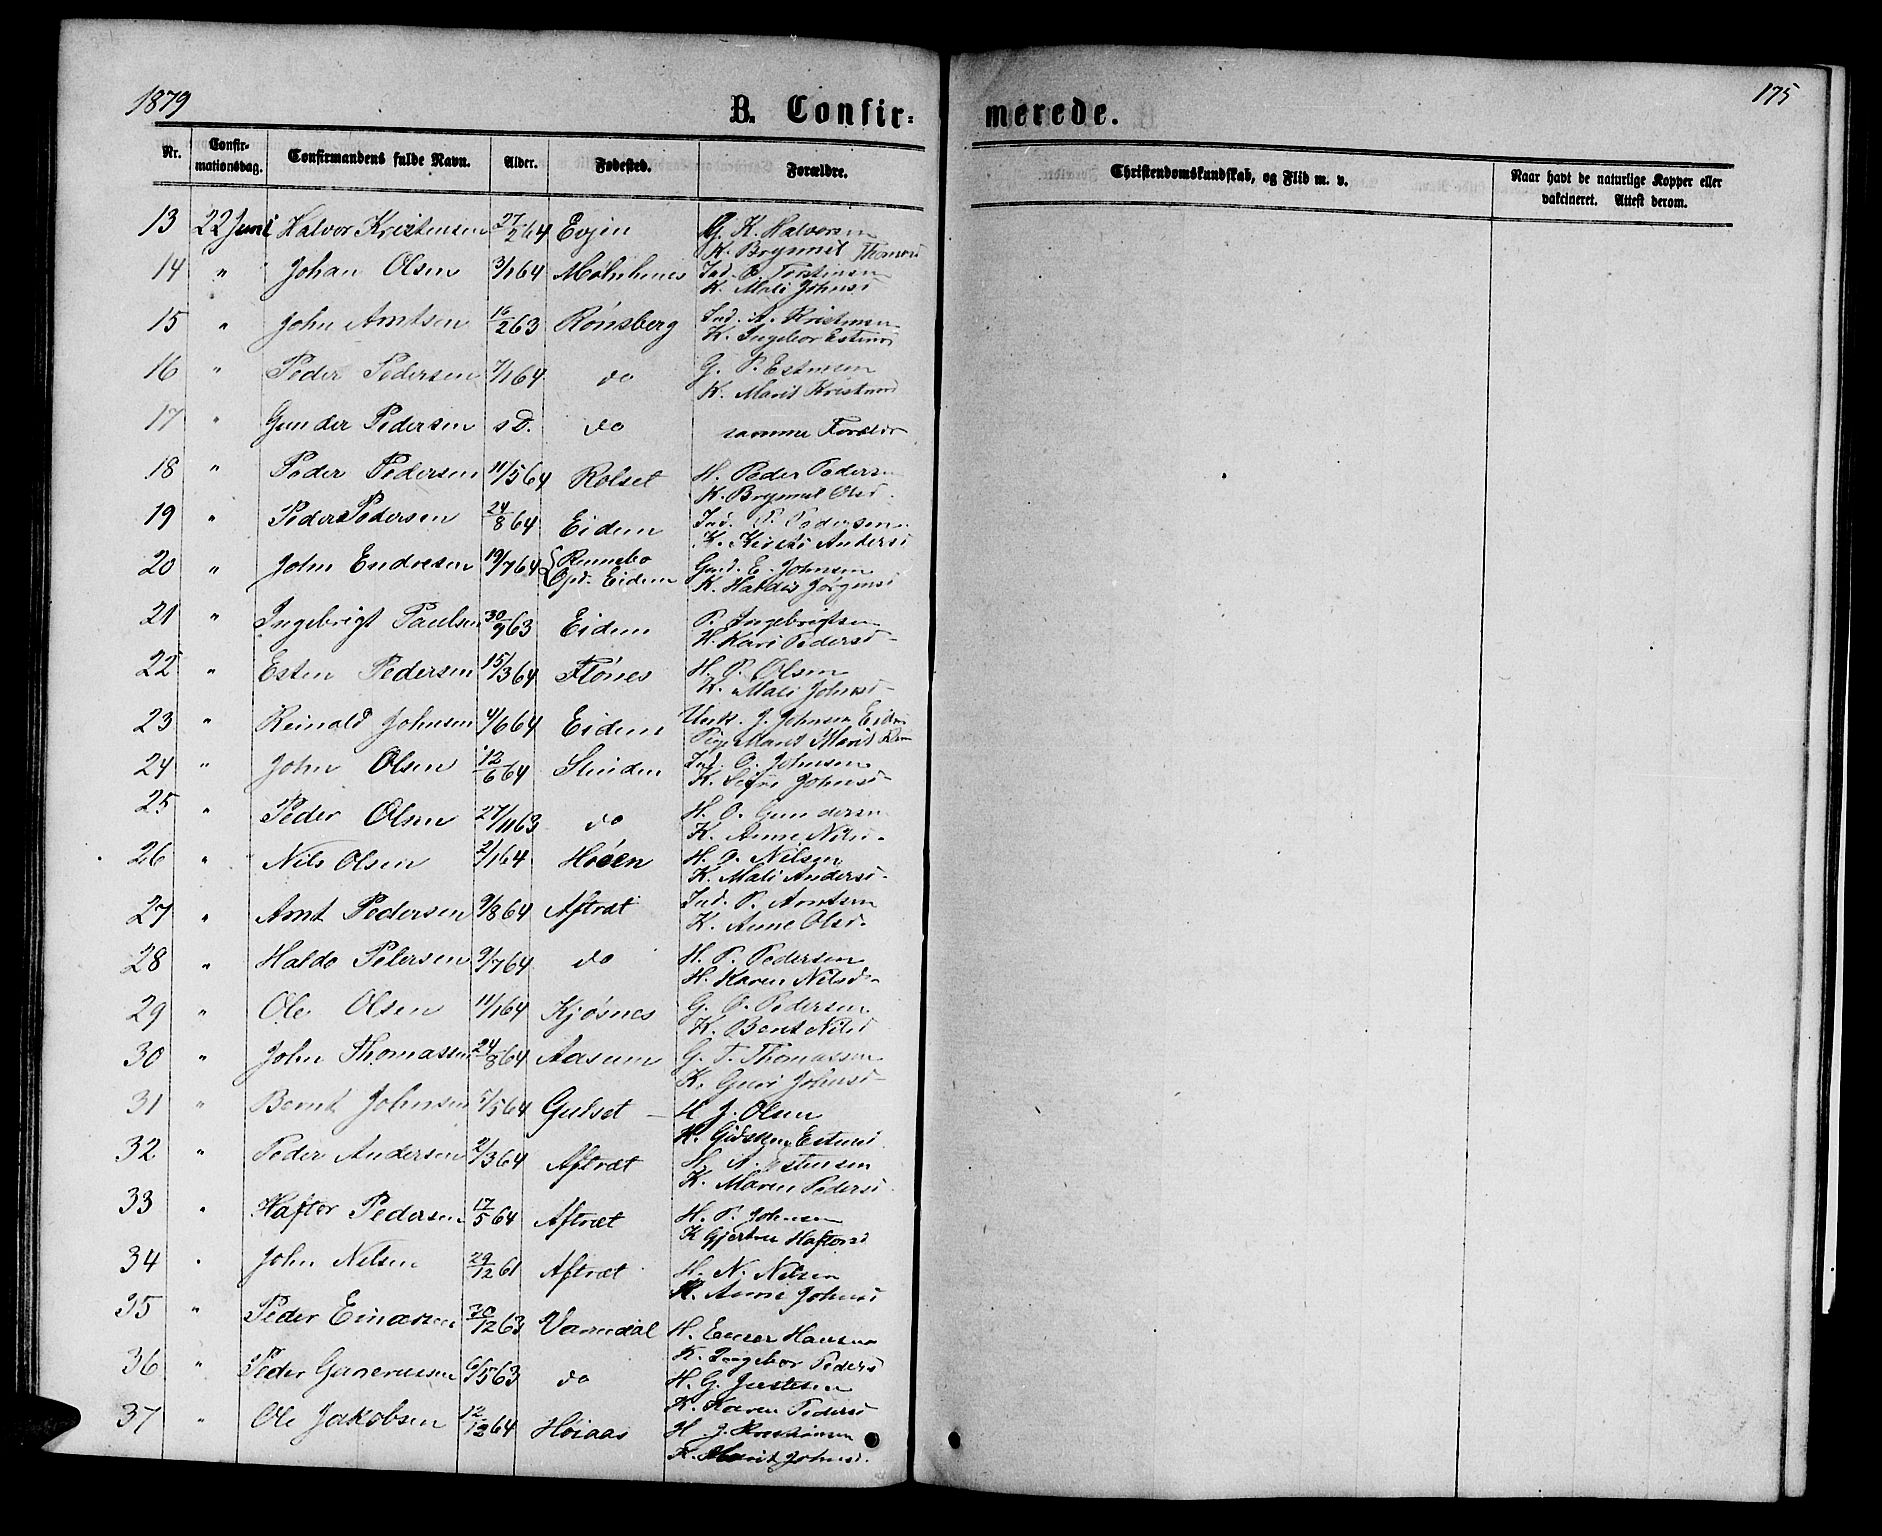 1879
B. Confir=
merede.
175
Nr.
Confir-
mationsdag.
Confirmandens fulde Navn.
Alder.
Fødested.
Forældre.
Christendomskundskab, og Flid m. v.
Naar havt de naturlige Kopper eller
vakcineret. Attest derom.
13 22 Juni Halvor Kristensen 27/2 64 Evjen G. K. Halvorsen
K. Brynnil Thomasd
14 " Johan Olsen 3/1 64 Molnhenes Ind. O. Torstensen
K. Mali Johnsd
15 " John Arntsen 16/2 63 Rønsberg Ind. A. Kristensen
K. Ingebor Estensd
16 " Peder Pedersen 7/1 64 do G. P. Estensen
K. Marit Kristensd
17 " Gunder Pedersen s D. do samme Forældr
18 " Peder Pedersen 11/5 64 Rolset H. Peder Pedersen
K. Brynnil Olsd.
19 " Peder Pedersen 24/8 64 Eidem Ind. P. Pedersen
K. Kirsti Andersd
20 " John Endresen 19/7 64 Rennebo Gad. E. Johnsen
Opd. Eidem K. Haldis Jørgensd
21 " Ingebrigt Paulsen 30/9 63 Eidem P. Ingebrigtsen
H. Kari Pedersd-
22 " Esten Pedersen 15/3 64 Flønes H. P. Olsen
K. Mali Johnsd-
23 " Reinald Johnsen 4/6 64 Eidem Unk. J. Johnsen Eidm
Pige Marit
24 " John Olsen 12/6 64 Slinden Ind. O. Johnsen
K. Sifri Johnsd-
25 " Peder Olsen 27/11 63 do H. O. Gundersen
K. Anne Nilsd.
26 " Nils Olsen 2/1 64 Høien H. O. Nilsen
K. Mali Andersd.
27 " Arnt Pedersen 9/8 64 Aftræt Ind. P. Arntsen
K. Anne Olsd.
28 " Haldo Petersen 9/7 64 do H. P. Pedersen
H. Karen Nilsd-
29 " Ole Olsen 11/1 64 Kjøsnes G. O. Pedersen
K. Berit Nilsd
30 " John Thomassen 24/8 64 Aasum G. T. Thomassen
K. Guri Johnsd-
31 " Bernt Johnsen 7/5 64 Gulset - H J. Olsen
K. Gidsken Estensd
32 " Peder Andersen 2/3 64 Aftræt H. A. Estensen
K. Maren Pedersd.
33 " Haftor Pedersen 17/5 64 Aftræt H. P. Johnsen
K Gjertru Haftorsd
34 " John Nilsen 29/12 61 Aftræt H. N. Nilsen
K. Anne Johnsd
35 " Peder Einarsen 30/12 63 Varmdal H. Einar Hansen
K. Ingebor Pedersd
36 " Peder Gunerussen 6/5 63 do H. G. Justesen
K. Karen Pedersd
37 " Ole Jakobsen 12/12 64 Høiaas H. J. Kristiansen
K. Marit Johnsd.